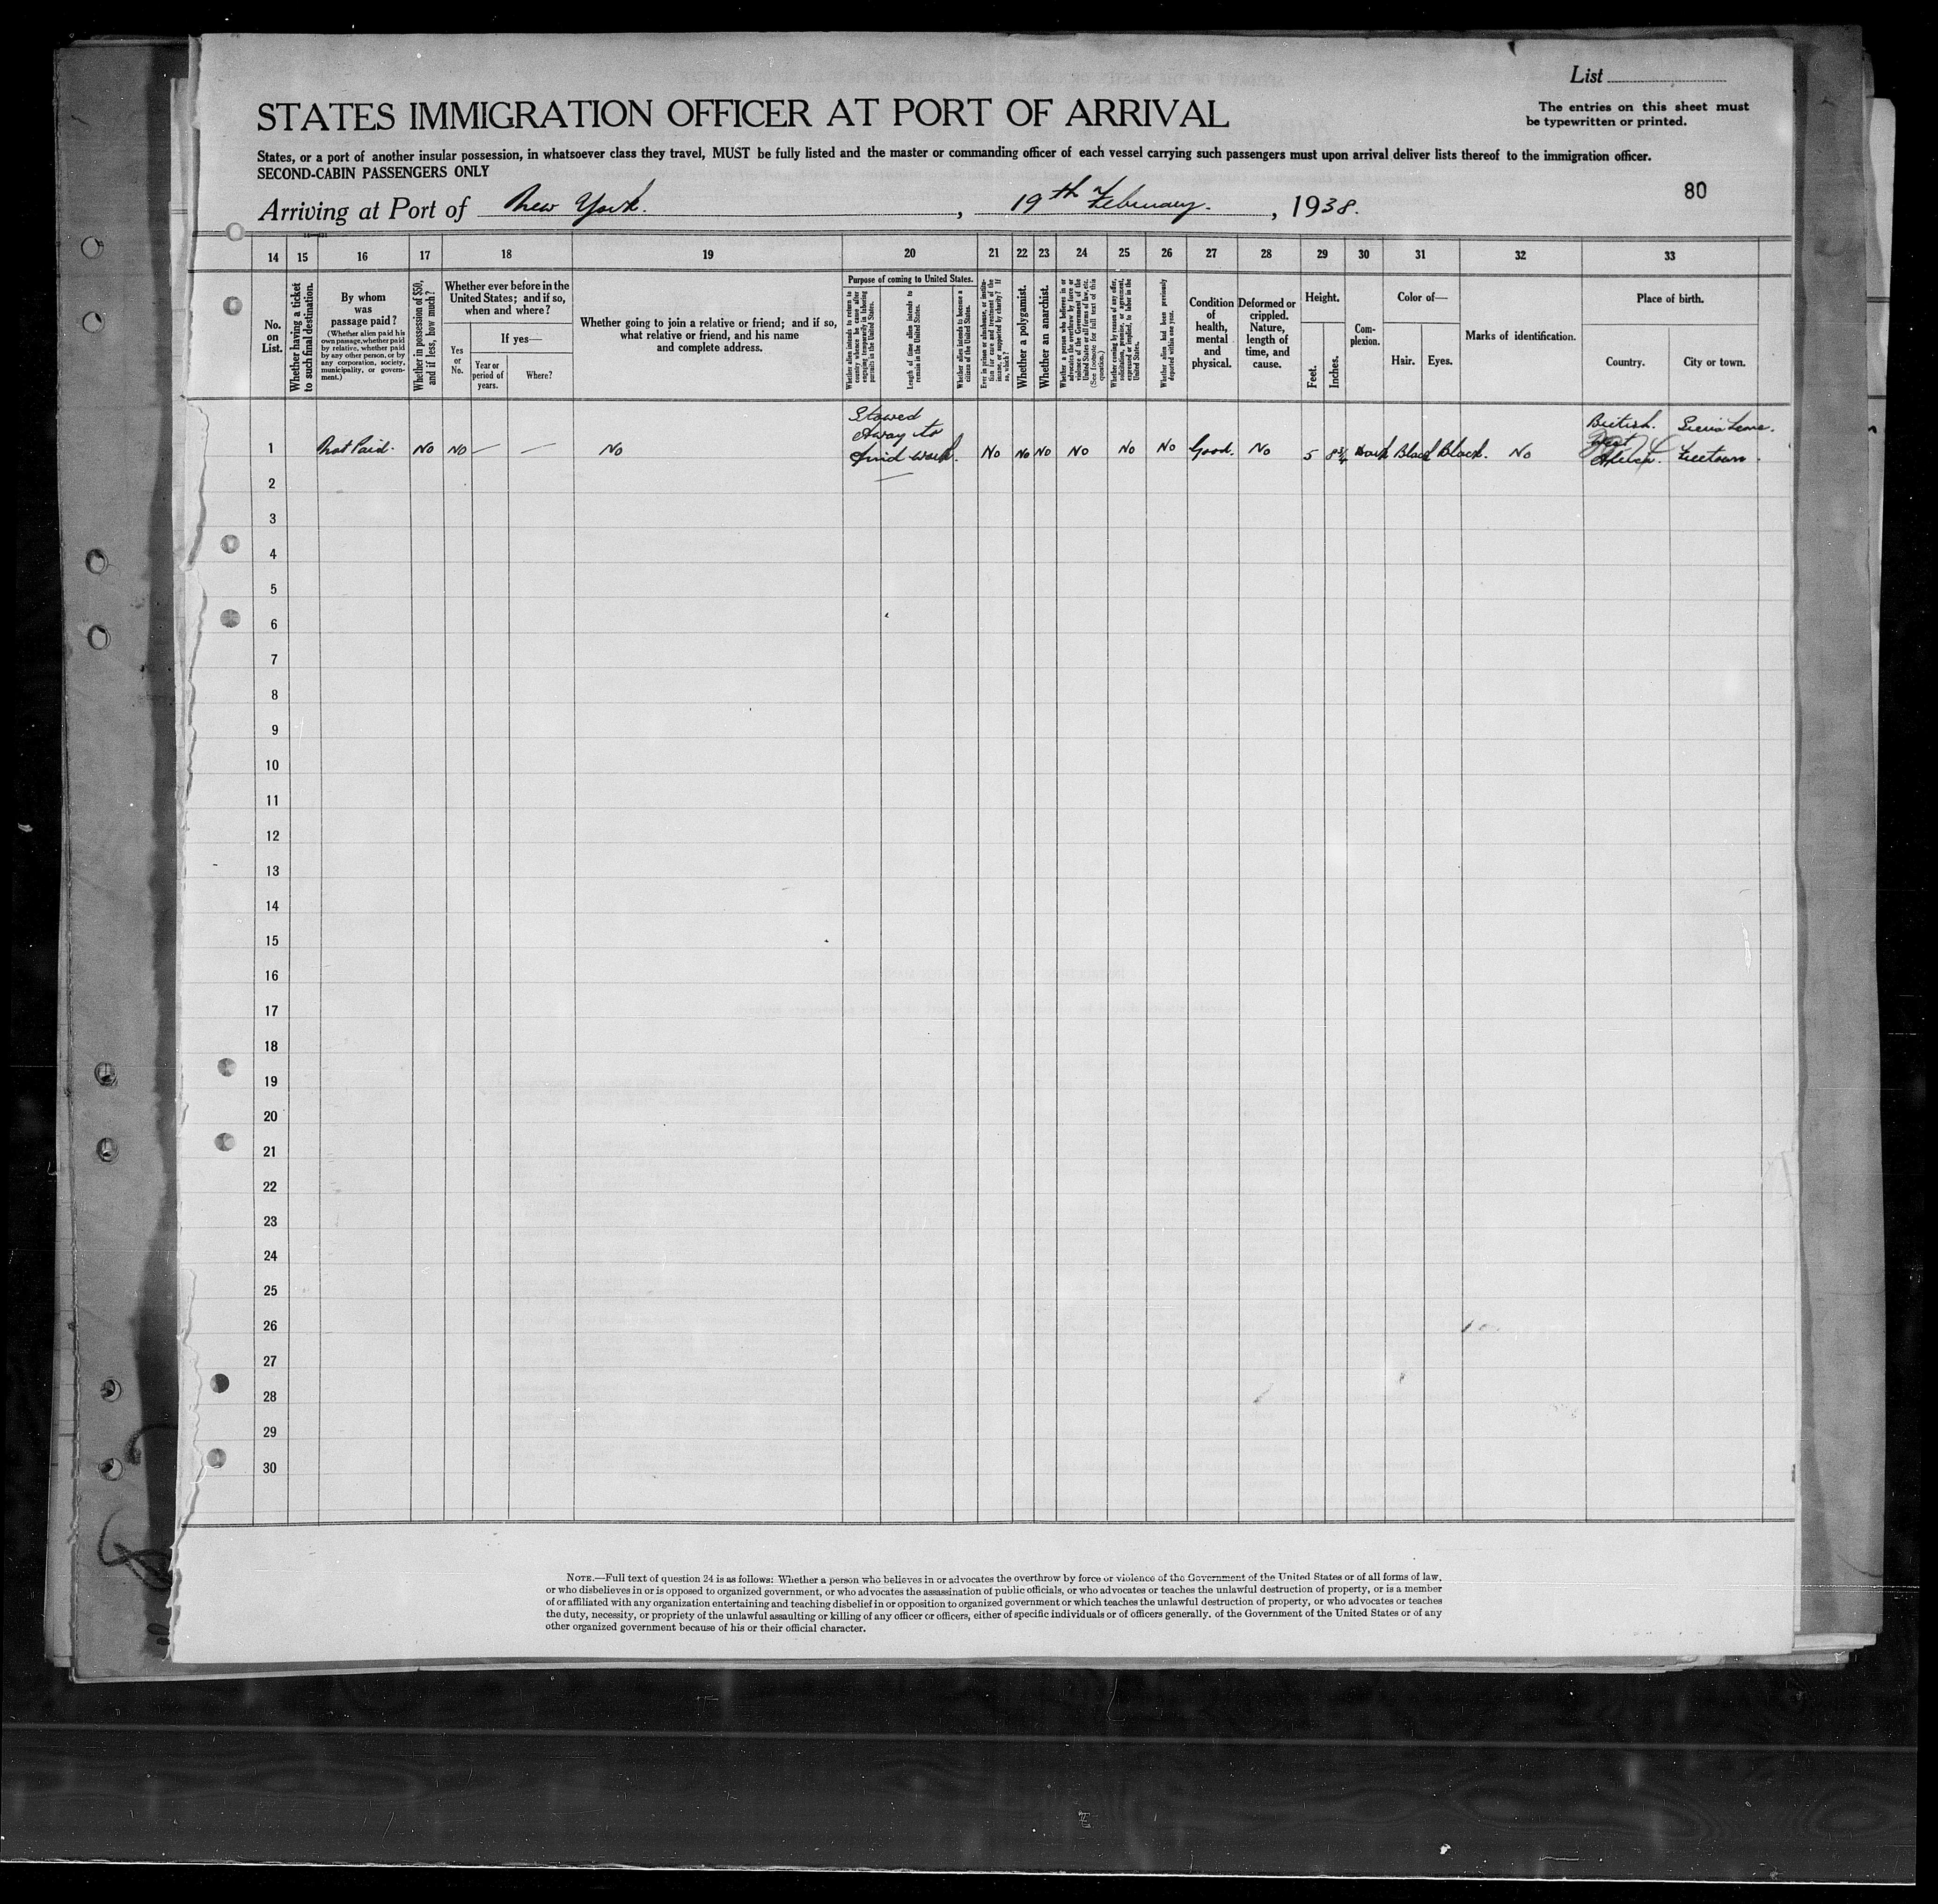 List
STATES IMMIGRATION OFFICER AT PORT OF ARRIVAL
The entries on this sheet must
be typewritten or printed.
States, or a port of another insular possession, in whatsoever class they travel, MUST be fully listed and the master or commanding officer of each vessel carrying such passengers must upon arrival deliver lists thereof to the immigration officer.
SECOND-CABIN PASSENGERS ONLY
80
Arriving at Port of New York. , 19th February. , 1938.
14 15 16 17 18 19 20 21 22 23 24 25 26 27 28 29 30 31 32 33
No.
on
List.
Whether having a ticket
to such final destination.
By whom
was
passage paid?
(Whether alien paid his
own passage, whether paid
by relative, whether paid
by any other person, or by
any corporation, society,
municipality, or govern-
ment.)
Whether in possession of $50,
and if less, how much?
Whether ever before in the
United States; and if so,
when and where?
Yes
or
No.
If yes—
Year or
period of
years.
Where?
Whether going to join a relative or friend; and if so,
what relative or friend, and his name
and complete address.
Purpose of coming to United States.
Whether alien intends to return to
country whence he came after
engaging temporarily in laboring
pursuits in the United States.
Length of time alien intends to
remain in the United States.
Whether alien intends to become a
citizen of the United States.
Ever in prison or almshouse, or institu-
tion for care and treatment of the
insane, or supported by charity? If
so, which?
Whether a polygamist.
Whether an anarchist.
Whether a person who believes in or
advocates the overthrow by force or
violence of the Government of the
United States or all forms of law, etc.
(See footnote for full text of this
question.)
Whether coming by reason of any offer,
solicitation, promise, or agreement,
expressed or implied, to labor in the
United States.
Whether alien had been previously
deported within one year.
Condition
of
health,
mental
and
physical.
Deformed or
crippled.
Nature,
length of
time, and
cause.
Height.
Feet.
Inches.
Com-
plexion.
Color of—
Hair.
Eyes.
Marks of identification.
Place of birth.
Country.
City or town.
1 Not Paid. No No — — No
Stowed
Away to
find work.
No No No No No No Good. No 5 8¾ Dark Black Black. No
British.
West
Africa.
Sierra Leone.
Freetown.
2
3
4
5
6
7
8
9
10
11
12
13
14
15
16
17
18
19
20
21
22
23
24
25
26
27
28
29
30
NOTE.—Full text of question 24 is as follows: Whether a person who believes in or advocates the overthrow by force or violence of the Government of the United States or of all forms of law,
or who disbelieves in or is opposed to organized government, or who advocates the assassination of public officials, or who advocates or teaches the unlawful destruction of property, or is a member
of or affiliated with any organization entertaining and teaching disbelief in or opposition to organized government or which teaches the unlawful destruction of property, or who advocates or teaches
the duty, necessity, or propriety of the unlawful assaulting or killing of any officer or officers, either of specific individuals or of officers generally. of the Government of the United States or of any
other organized government because of his or their official character.